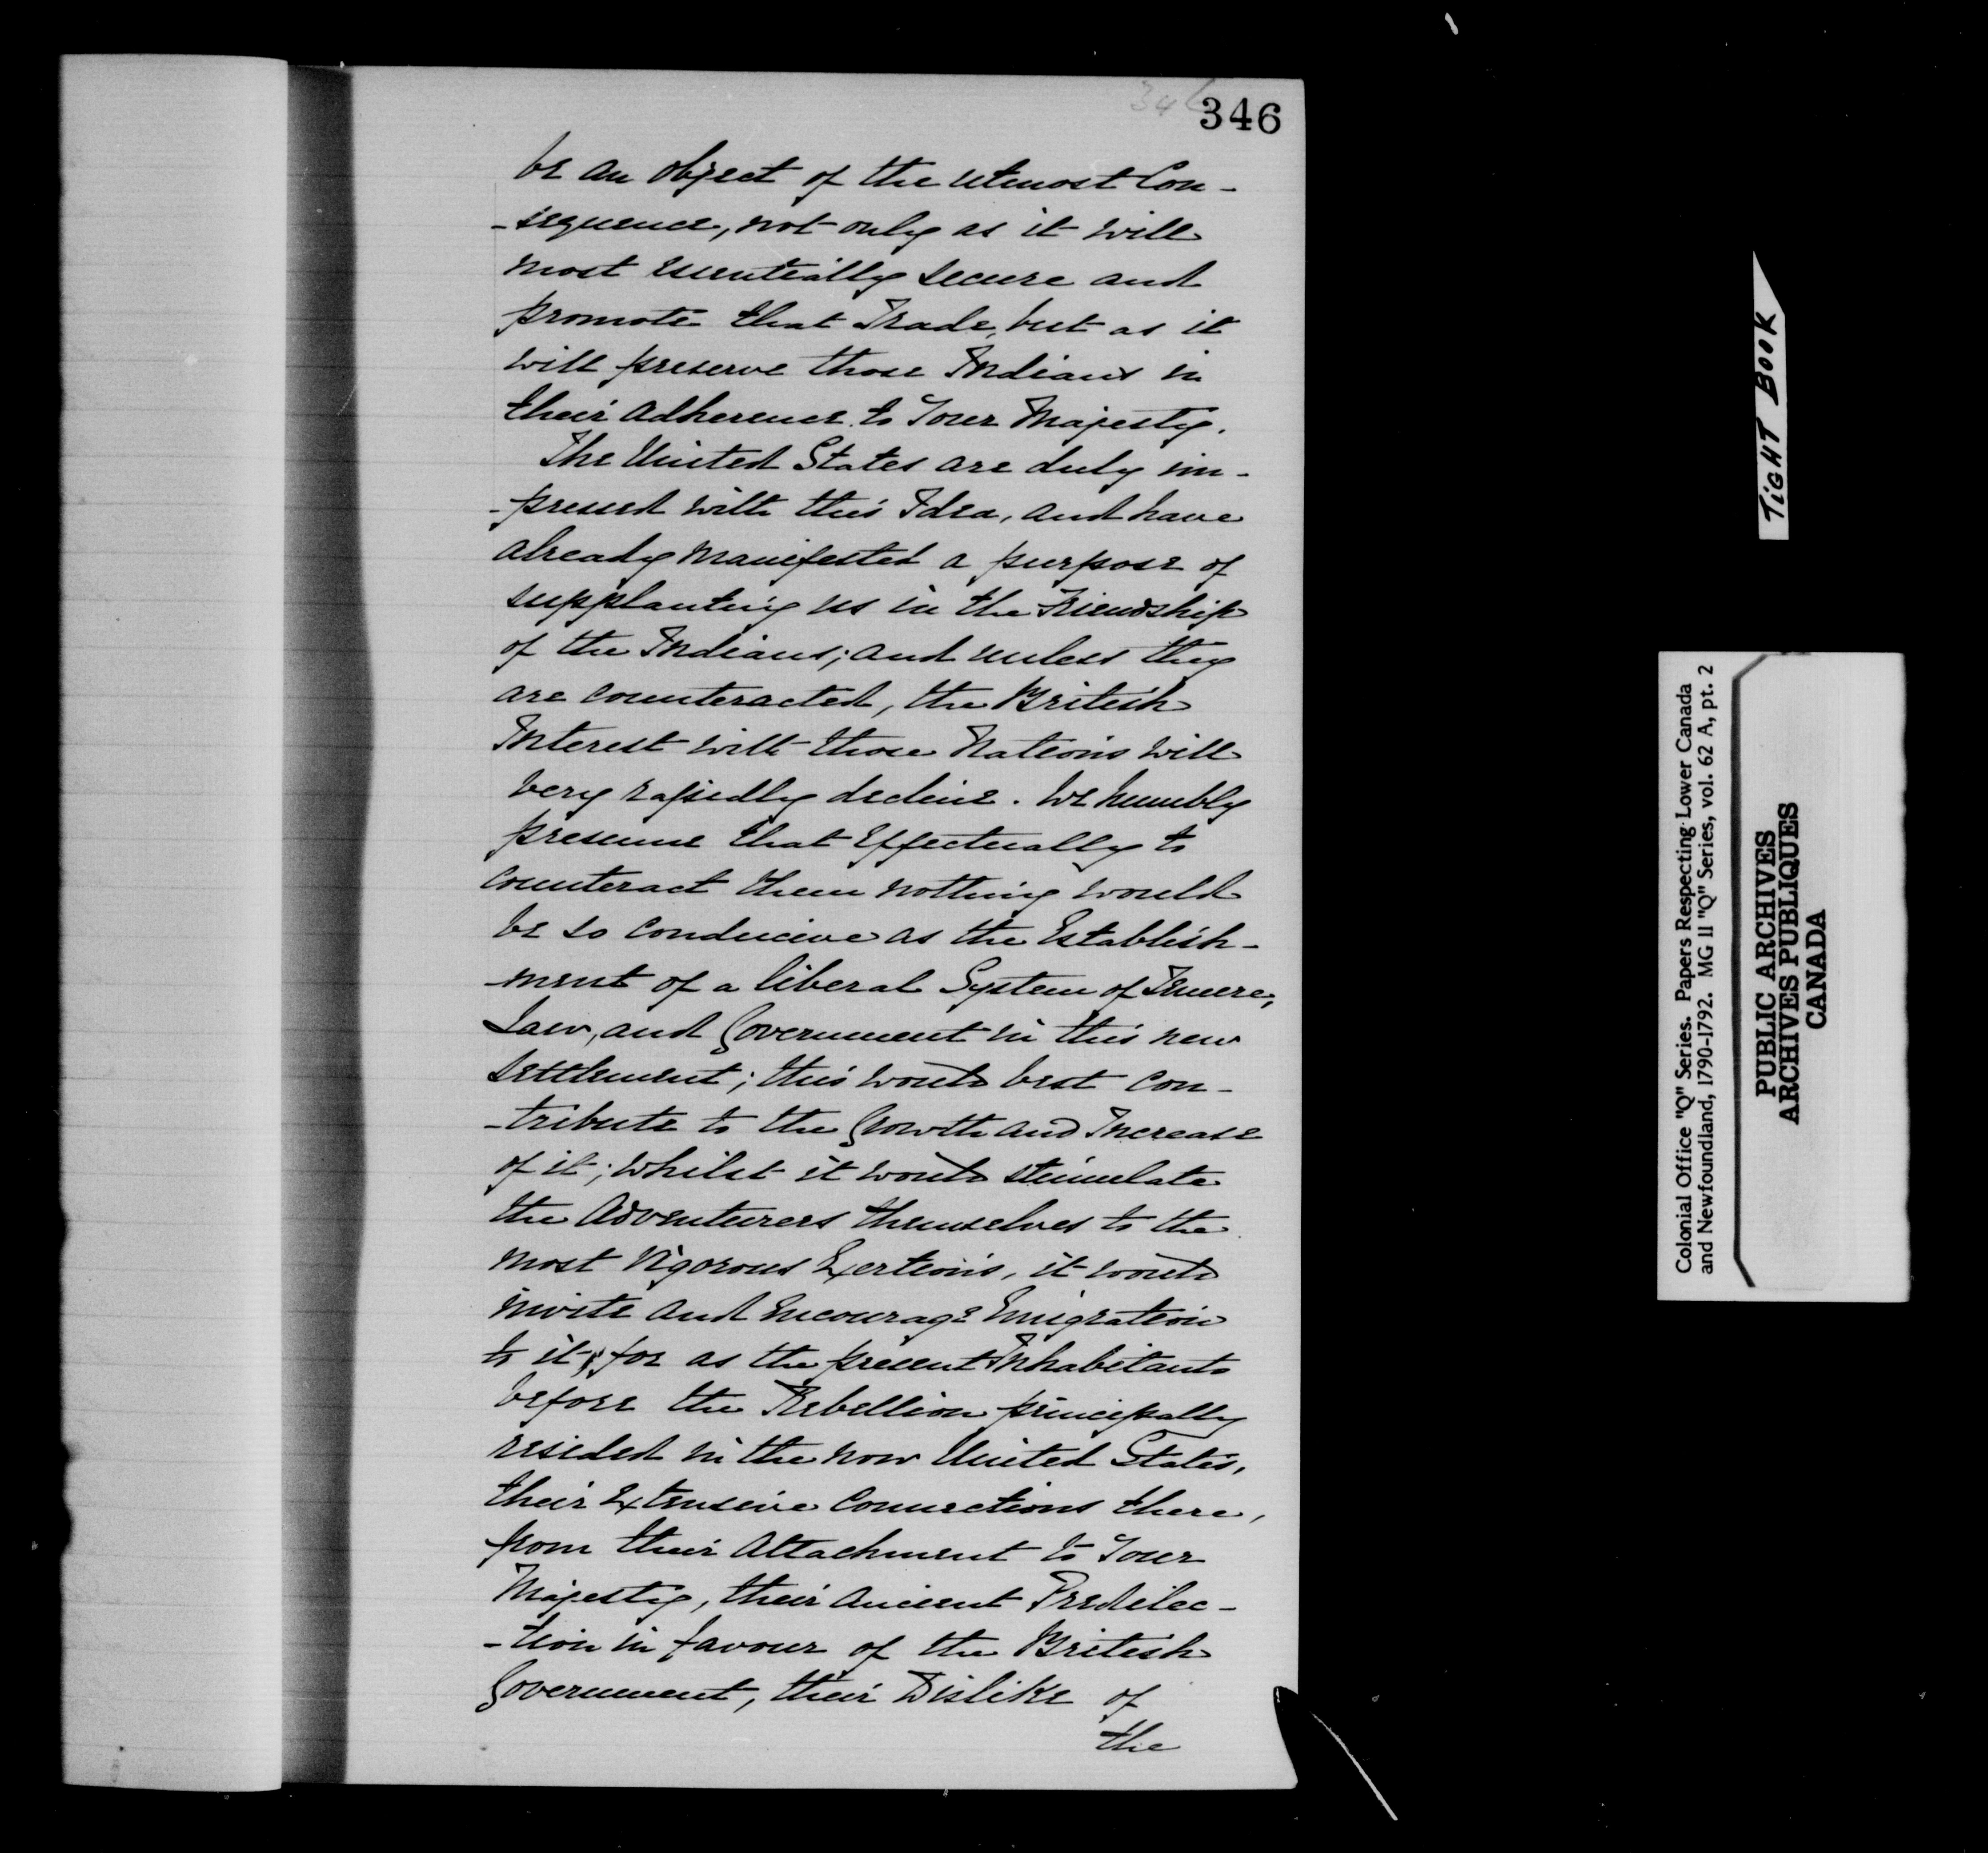 346
346
be an object of the utmost Con-
-sequence, not only as it will
most essentially secure and
promote that Trade, but as it
will preserve those Indians in
their adherence to Your Majesty.
The United States are duly im-
-pressed with this Idea, and have
already manifested a purpose of
supplanting us in the Friendship
of the Indians; and unless they
are counteracted, the British
Interest with those Nations will
very rapidly decline. We humbly
presume that Effectually to
counteract them nothing would
be so conducive as the Establish-
-ment of a liberal System of Tenure,
Law, and Government in this new
settlement; this would best con-
-tribute to the Growth and Increase
of it; whilst it would stimulate
the Adventurers themselves to the
most vigorous Exertions, it would
invite and Encourage Emigration
to it; for as the present Inhabitants
before the Rebellion principally
resided in the now United States,
their Extensive Connections there,
from their Attachment to Your
Majesty, their ancient Predilec-
-tion in favour of the British
Government, their Dislike of
the
TIGHT BOOK
Colonial Office "Q" Series. Papers Respecting Lower Canada
and Newfoundland, 1790-1792. MG 11 "Q" Series, vol. 62 A, pt. 2
PUBLIC ARCHIVES
ARCHIVES PUBLIQUES
CANADA